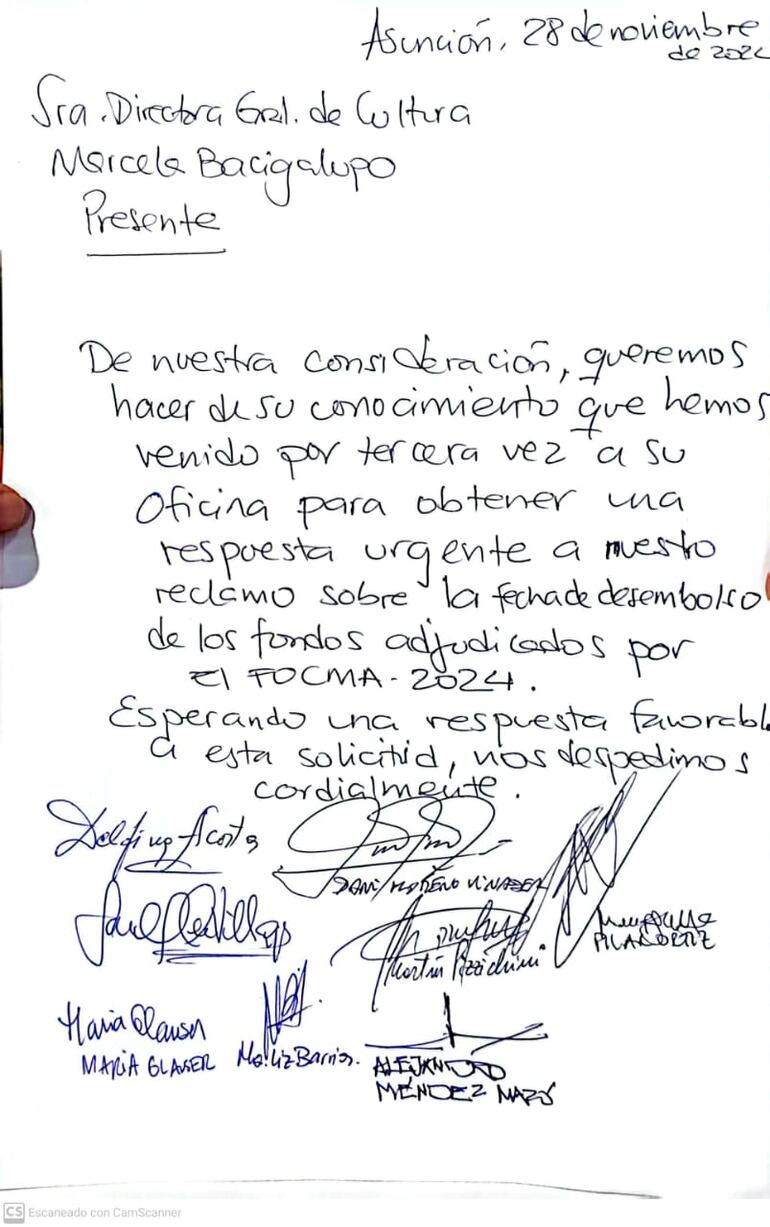 Asunción, 28 de noviembre
de 202
Sra. Directora Gral. de Cultura
Marcela Bacigalupo
Presente
De nuestra consideración, queremos
hacer de su conocimiento que hemos
venido por tercera vez a su
Oficina para obtener una
respuesta urgente a nuestro
reclamo sobre la fecha de desembolso
de los fondos adjudicados por
El FOCMA-2024.
Esperando una respuesta favorabl
a esta solicitid, nos despedimos
cordialmente.
Delfina Acosta
DANI MORENO VINADER
PILAR ORTIZ
Martín Pizzichini
Maria Glauser
MARIA GLAUSER
Ma. Liz Barrios.
ALEJANDRO
MÉNDEZ MAZÓ
CS Escaneado con CamScanner